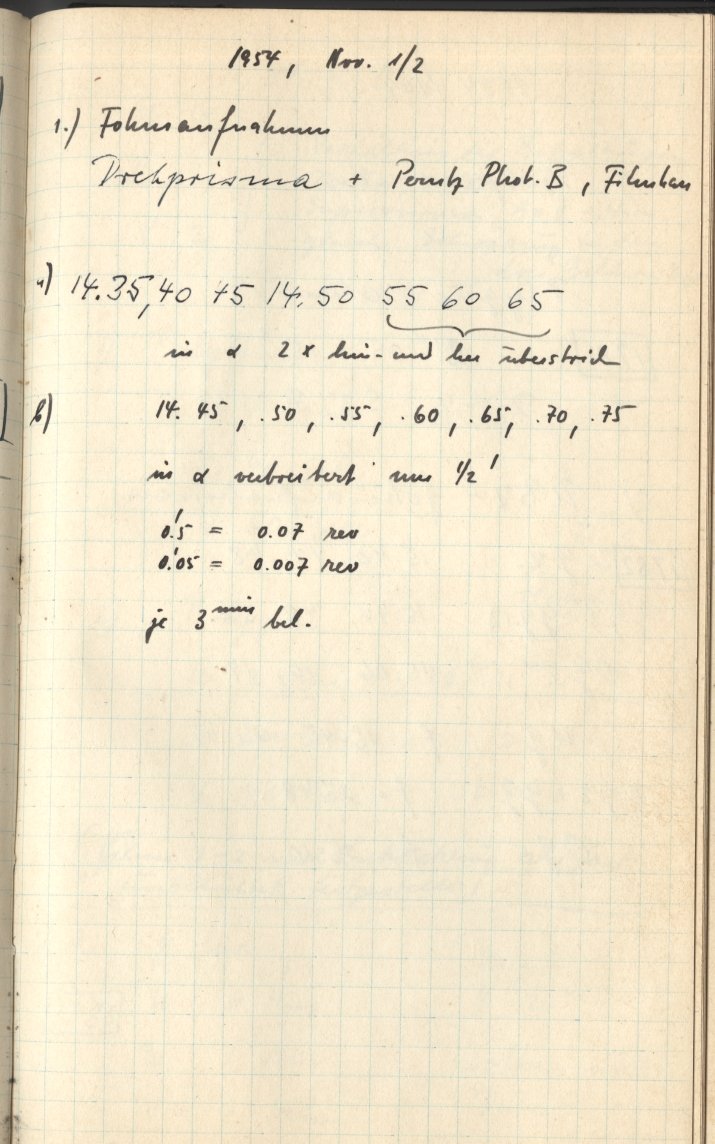 1954, Nov. 1/2
1.) Fokusaufnahmen
Drehprisma + Perutz Phot. B,
a) 14.35, 40 45 14.50 55 60 65
in α 2 x hin- und her überstrich
b) 14.45, .50, .55, .60, .65, .70, .75
in α verbreitert um 1/2'
0!5 = 0.07 rev
0!05 = 0.007 rev
je 3 min bel.